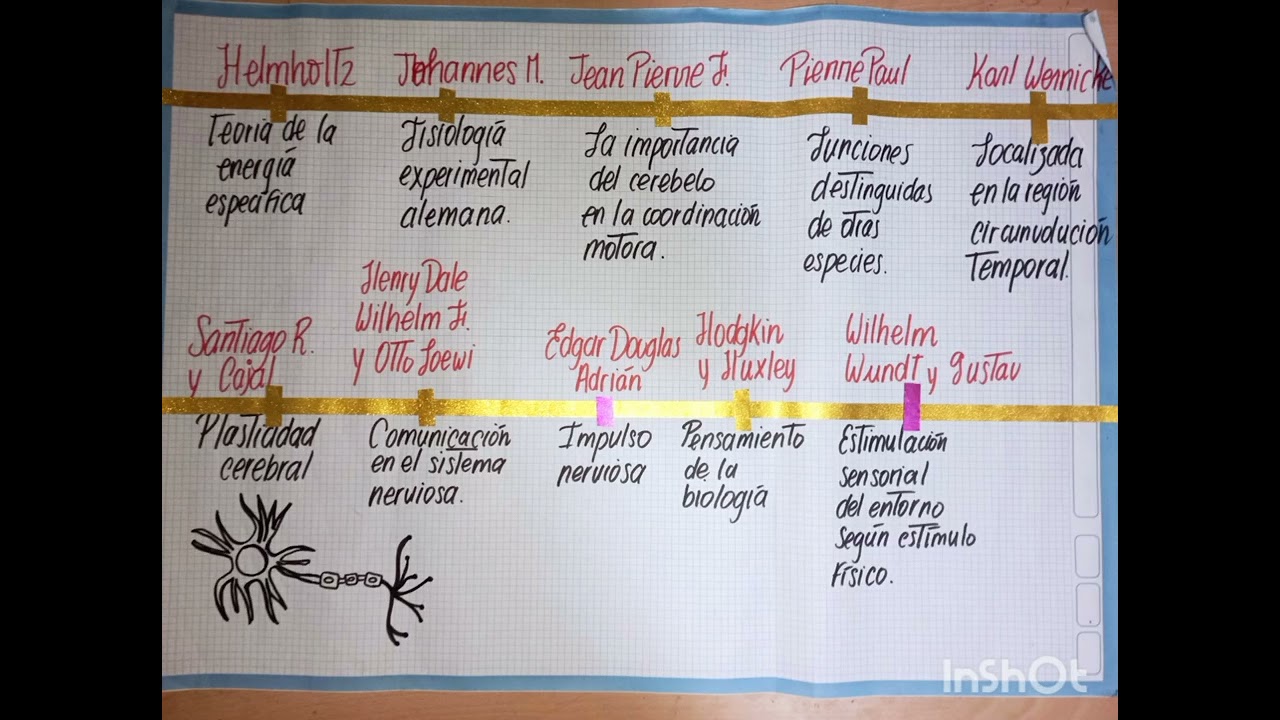 Helmholtz
Teoría de la
energía
específica
Johannes M.
Fisiología
experimental
alemana.
Jean Pierre F.
La importancia
del cerebelo
en la coordinación
motora.
Pierre Paul
Funciones
destinguidas
de otras
especies.
Karl Wernicke
Localizada
en la región
circunvdución
Temporal.
Santiago R.
y Cajál
Plasticidad
cerebral
Henry Dale
Wilhelm F.
y Otto Loewi
Comunicación
en el sistema
nerviosa.
Edgar Douglas
Adrián
Impulso
nerviosa
Hodgkin
y Huxley
Pensamiento
de la
biología
Wilhelm
Wundt y Gustav
Estimulación
sensorial
del entorno
según estímulo
Físico.
InShOt